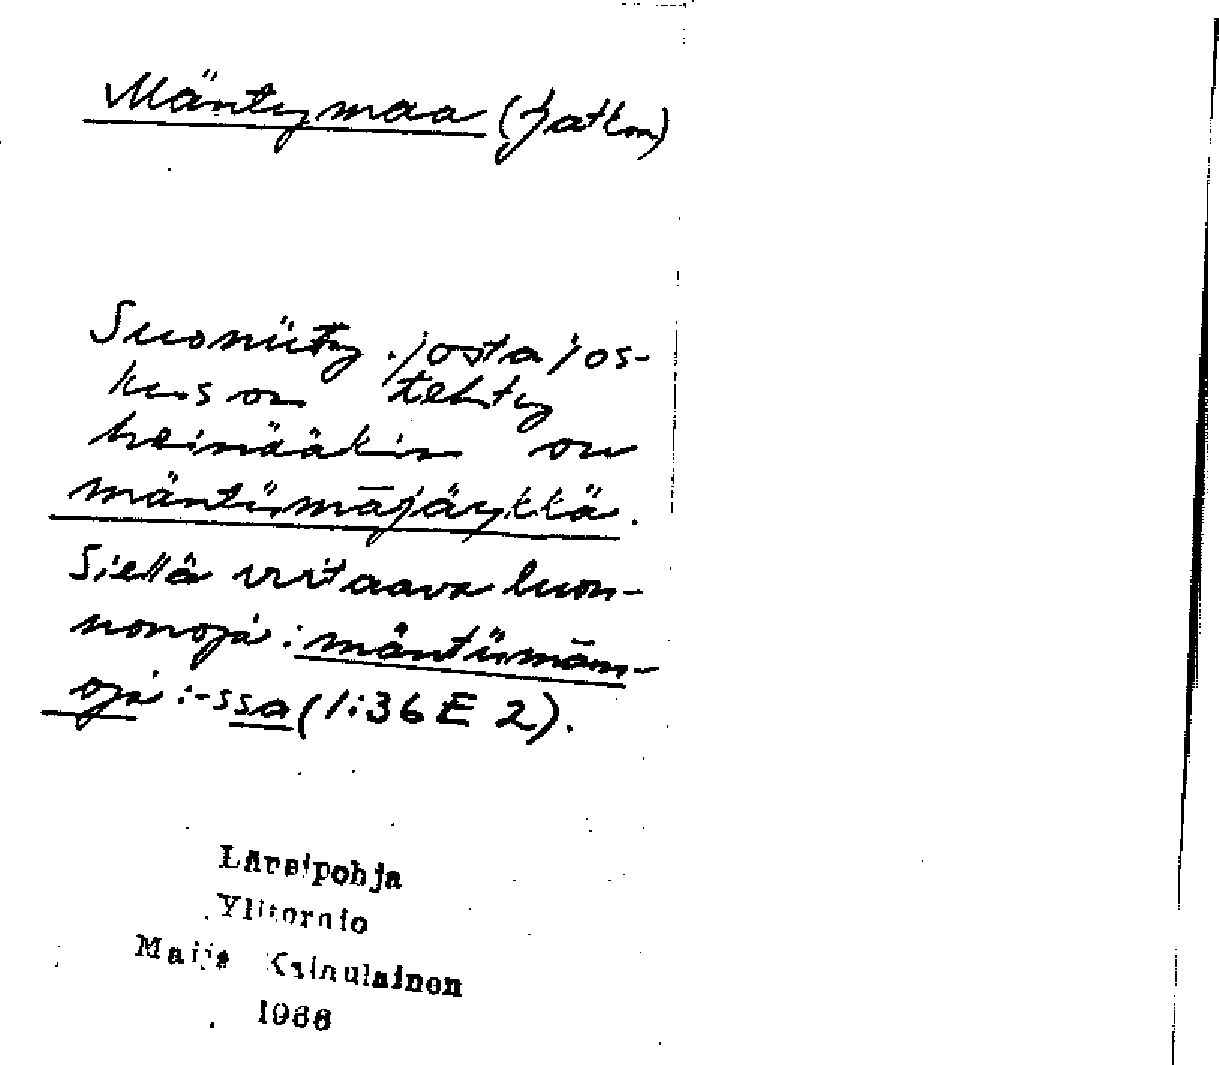 Mäntymaa (jatkoa)
Suoniitty, josta jos-
kus on tehty
heinääkin on
mäntüm̄ājäŋkkä.
Siellä virtaava luon-
nonoja: mäntümān-
oja :-ssa (1:36 E 2).
Länsipohja
Ylitornio
Maija Kainulainen
1966